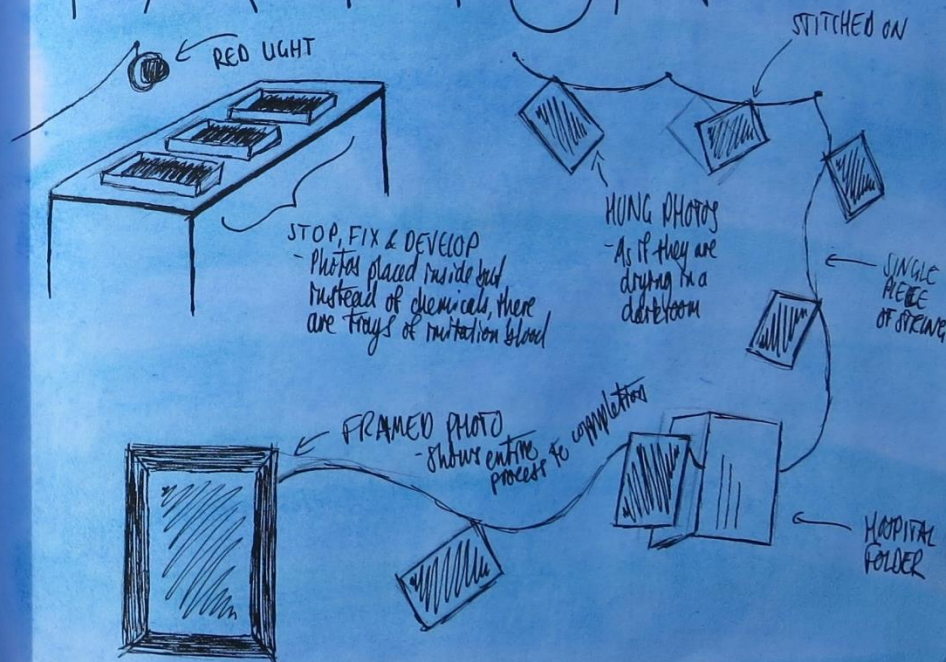 RED LIGHT
STITCHED ON
STOP, FIX & DEVELOP
- Photos placed inside but
instead of chemicals, there
are trays of imitation blood
HUNG PHOTOS
- As if they are
drying in a
darkroom
SINGLE
PIECE
OF STRING
FRAMED PHOTO
- Shows entire
process to completion
HOSPITAL
FOLDER